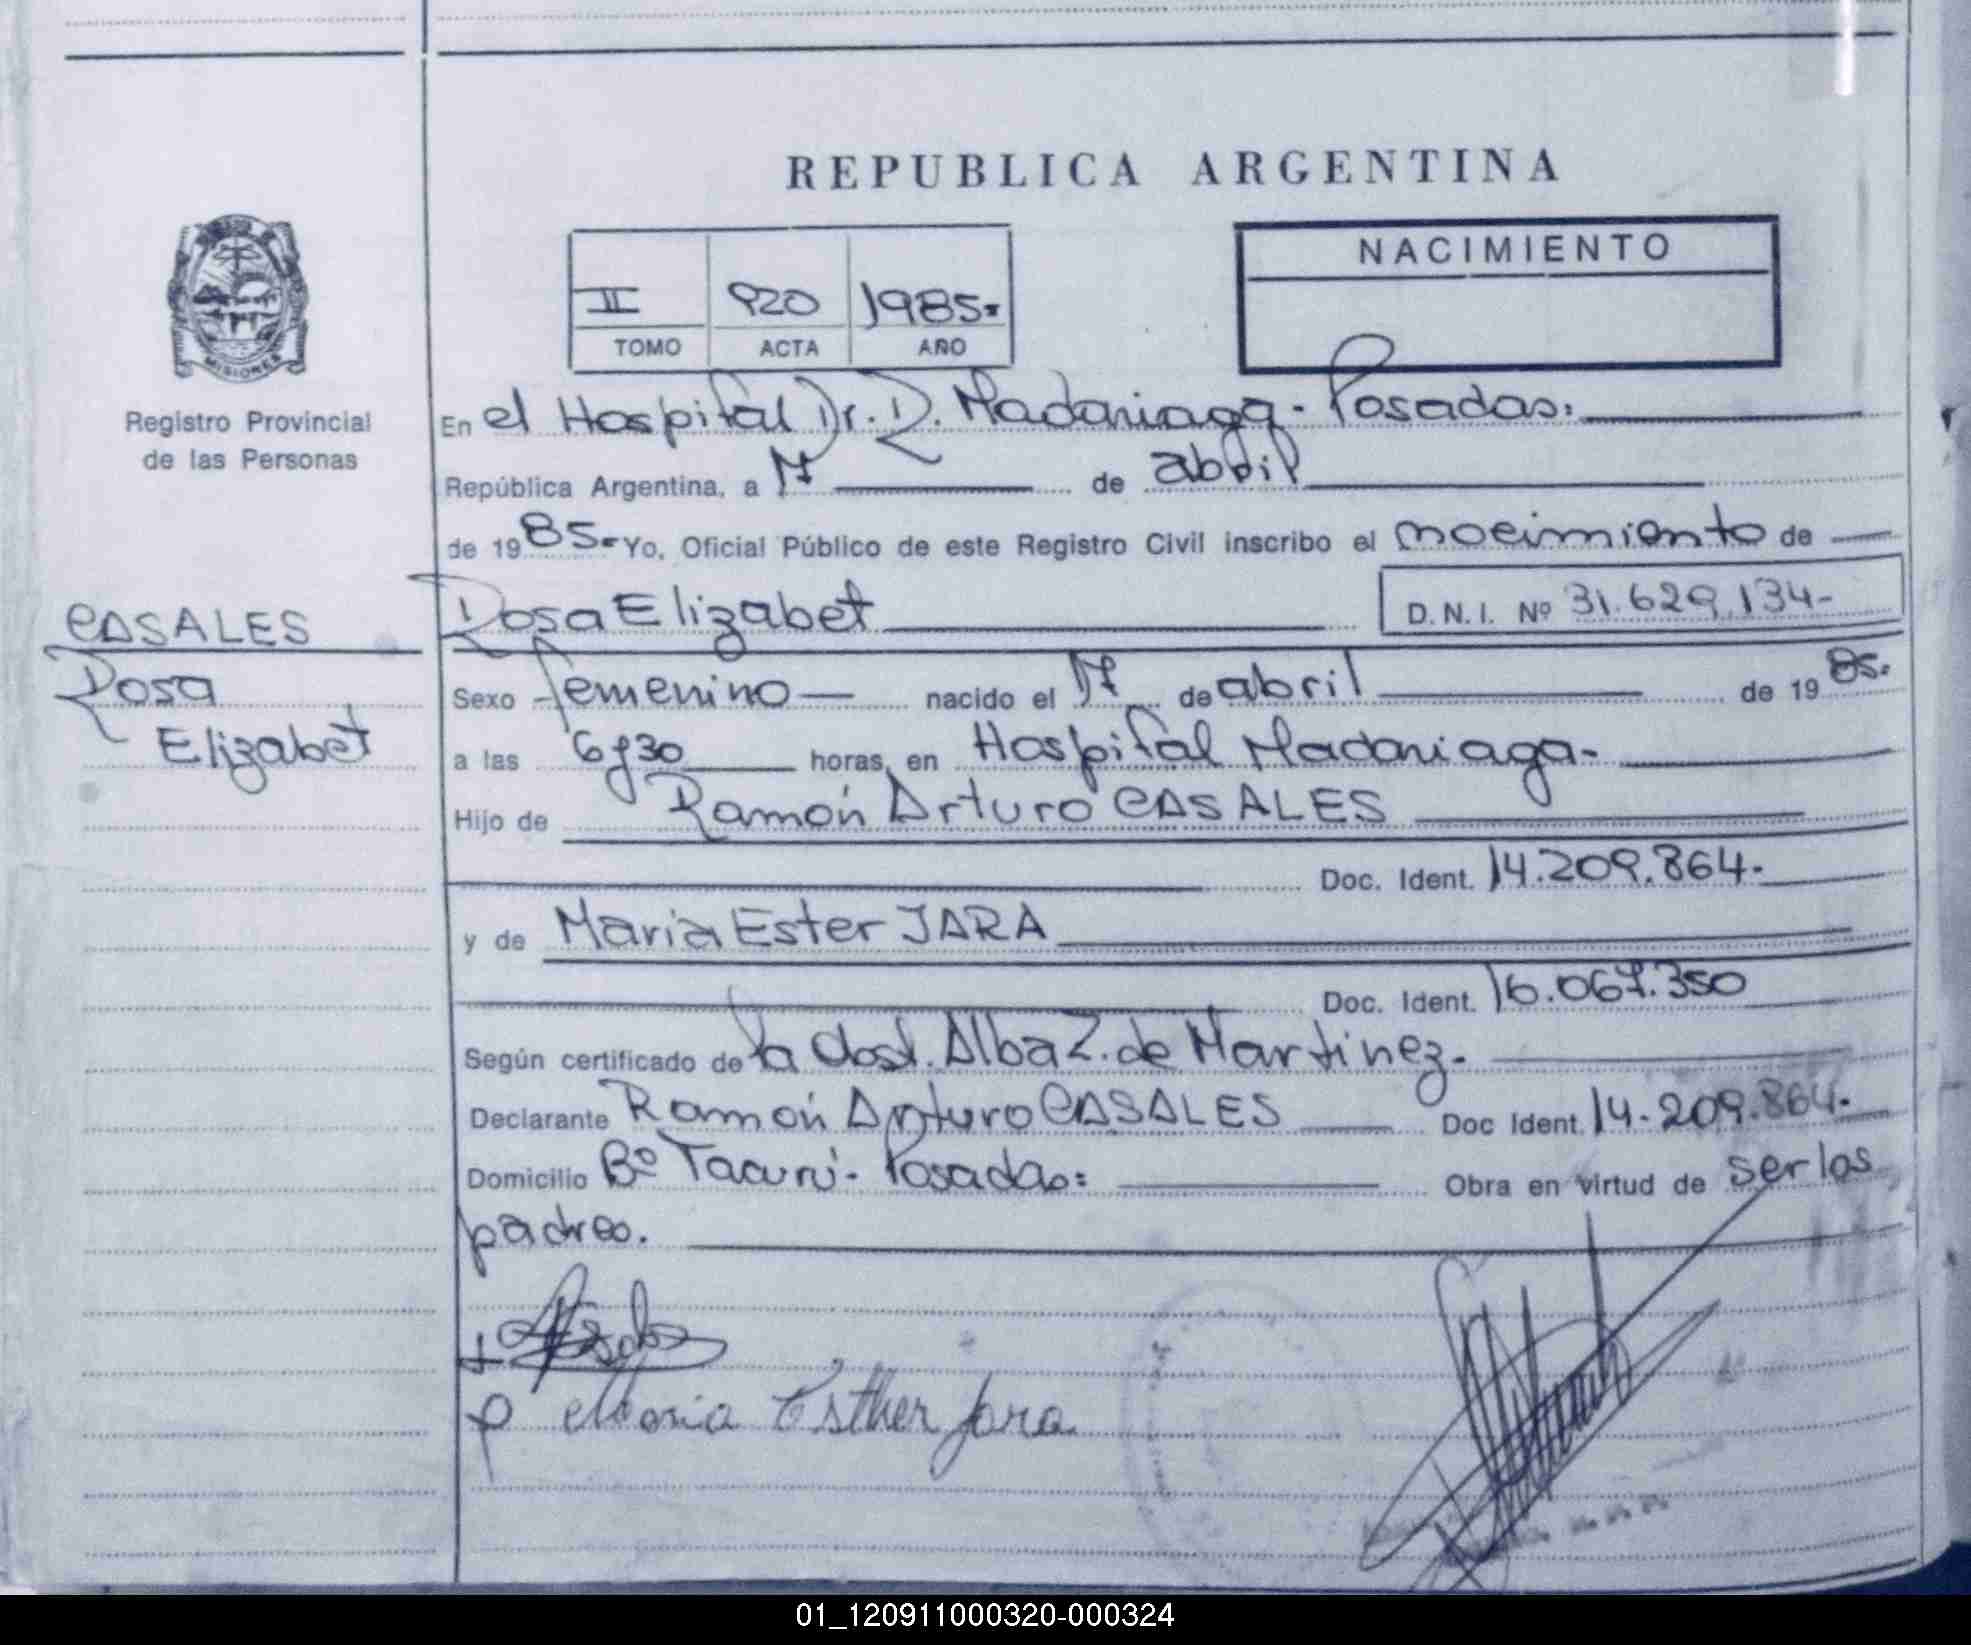 REPUBLICA ARGENTINA
NACIMIENTO
II 920 1985.
TOMO ACTA AÑO
MISIONES
Registro Provincial
de las Personas
En el Hospital Dr. R. Madariaga - Posadas:
República Argentina, a 17 de abril
de 1985. Yo, Oficial Público de este Registro Civil inscribo el nacimiento de
Rosa Elizabet D.N.I. Nº 31.629.134-
CASALES
Rosa
Elizabet
Sexo femenino nacido el 17 de abril de 1985.
a las 6 y 30 horas, en Hospital Madariaga-
Hijo de Ramón Arturo CASALES
Doc. Ident. 14.209.864.
y de María Ester JARA
Doc. Ident. 16.067.350
Según certificado de la obst. Alba Z. de Martinez.
Declarante Ramón Arturo CASALES Doc Ident. 14.209.864.
Domicilio Bº Tacurú - Posadas: Obra en virtud de ser los
padres.
Maria Esther Jara
01_120911000320-000324